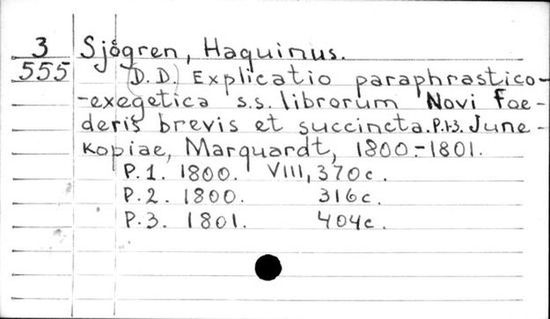 3 Sjögren, Haquinus.
555 (D.D.) Explicatio paraphrastico-
-exegetica s.s. librorum Novi Foe-
deris brevis et succincta. P.1-3. June-
kopiae, Marquardt, 1800.-1801.
P.1. 1800. VIII, 370c.
P.2. 1800. 316c.
P.3. 1801. 404c.